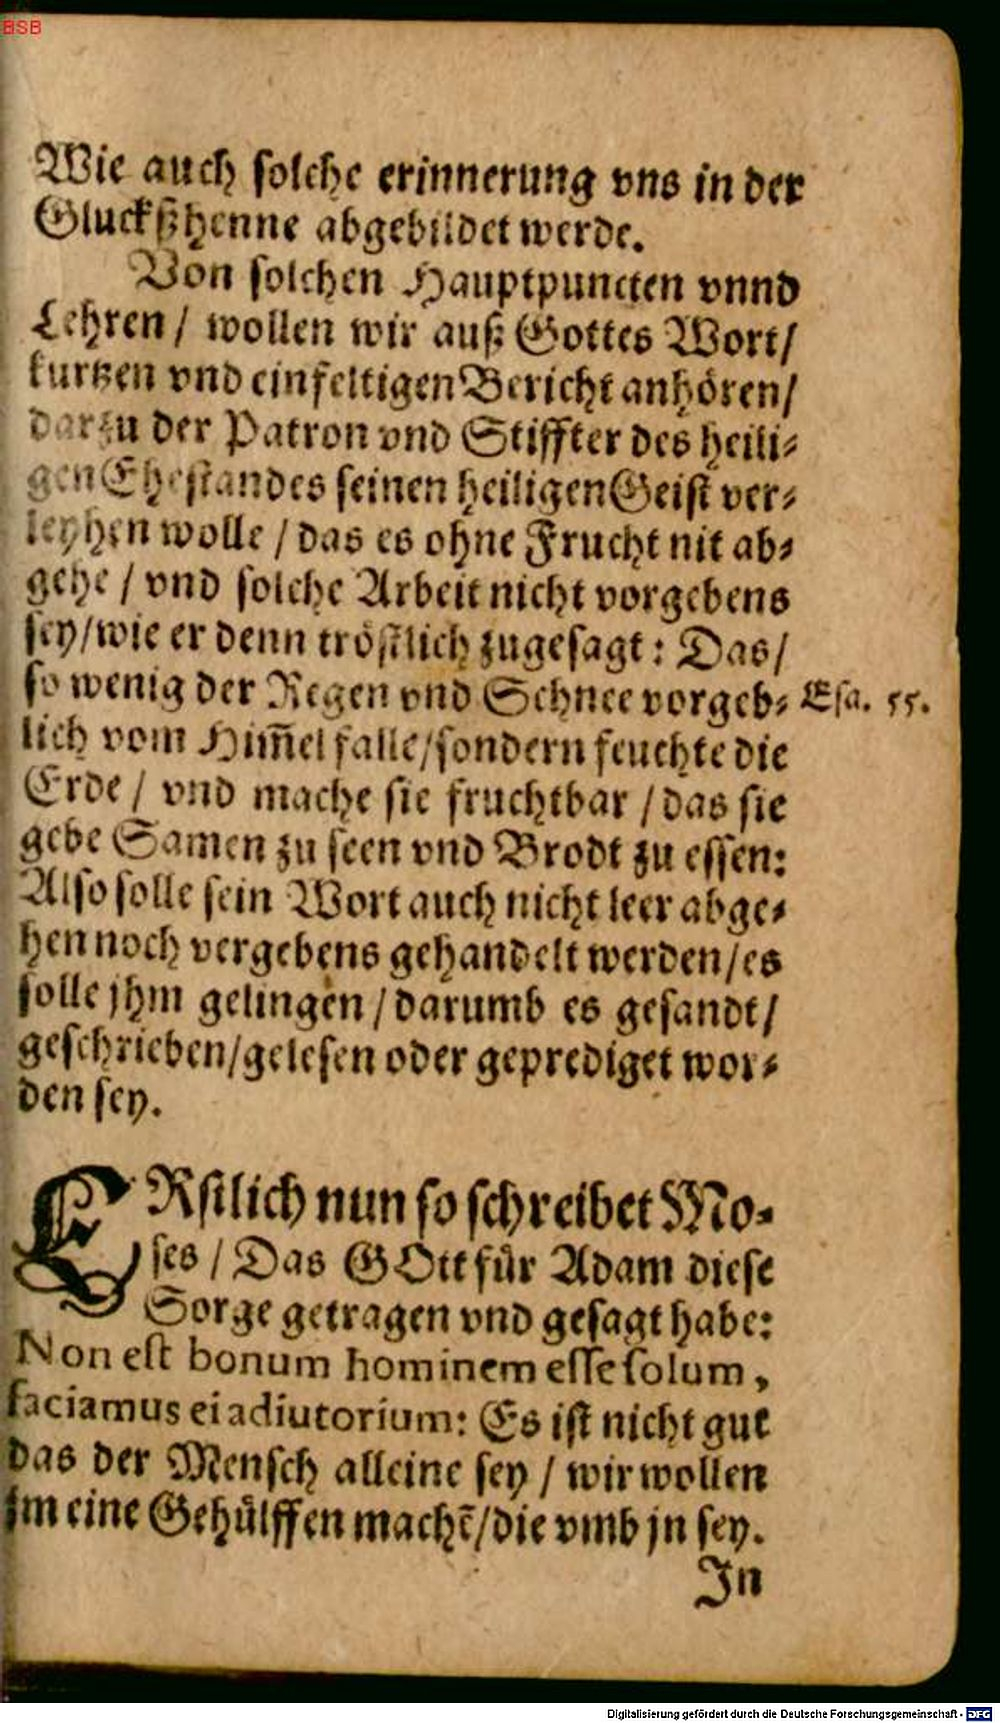 BSB
Wie auch solche erinnerung vns in der
Gluckßhenne abgebildet werde.
Von solchen Hauptpuncten vnnd
Lehren / wollen wir auß Gottes Wort/
kurtzen vnd einfeltigen Bericht anhören/
darzu der Patron vnd Stiffter des heili⸗
gen Ehestandes seinen heiligen Geist ver⸗
leyhen wolle / das es ohne Frucht nit ab⸗
gehe / vnd solche Arbeit nicht vorgebens
sey/wie er denn tröstlich zugesagt: Das/
so wenig der Regen vnd Schnee vorgeb⸗ Esa. 55.
lich vom Him̃el falle/sondern feuchte die
Erde / vnd mache sie fruchtbar / das sie
gebe Samen zu seen vnd Brodt zu essen:
Also solle sein Wort auch nicht leer abge⸗
hen noch vergebens gehandelt werden/es
solle jhm gelingen / darumb es gesandt/
geschrieben/gelesen oder geprediget wor⸗
den sey.
ERstlich nun so schreibet Mo⸗
ses / Das GOtt fůr Adam diese
Sorge getragen vnd gesagt habe:
Non est bonum hominem esse solum,
faciamus ei adiutorium: Es ist nicht gut
das der Mensch alleine sey / wir wollen
jm eine Gehůlffen machẽ/die vmb jn sey.
In
Digitalisierung gefördert durch die Deutsche Forschungsgemeinschaft - DFG